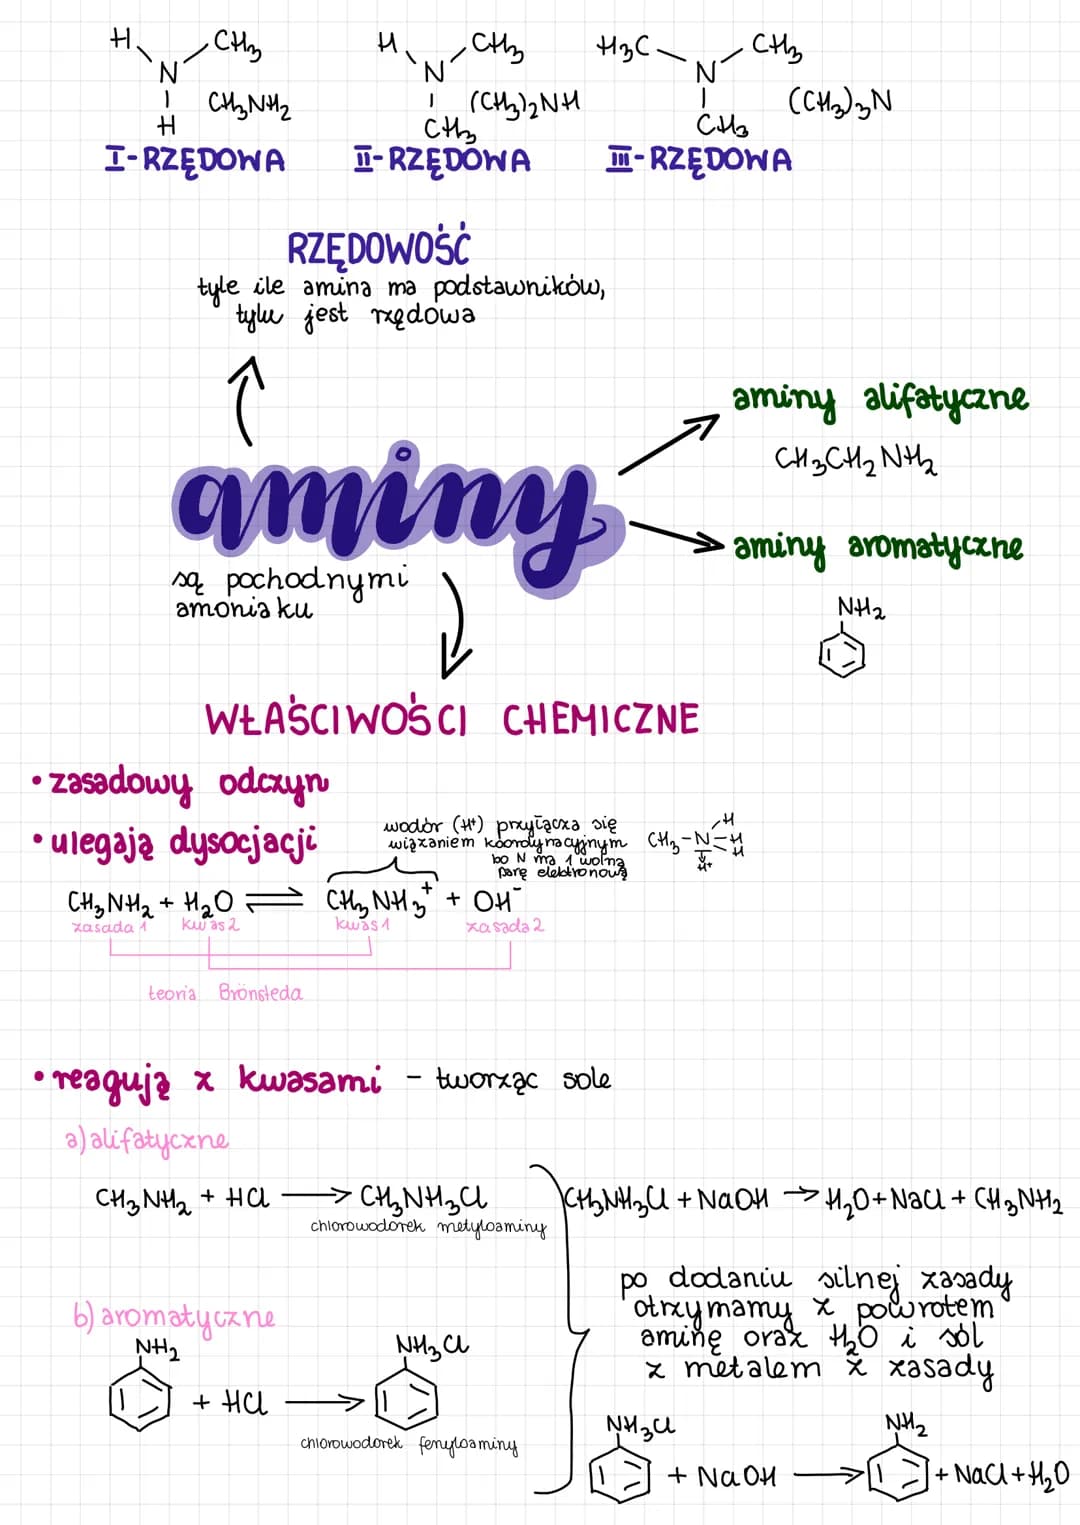 H CH₃ H CH₃ H₃C CH₃
N N N
H CH₃NH₂ CH₃ (CH₃)₂NH CH₃ (CH₃)₃N
I-RZĘDOWA II-RZĘDOWA III-RZĘDOWA
RZĘDOWOŚĆ
tyle ile amina ma podstawników,
tylu jest rzędowa
aminy
są pochodnymi
amoniaku
aminy alifatyczne
CH₃CH₂NH₂
aminy aromatyczne
NH₂
WŁAŚCIWOŚCI CHEMICZNE
• zasadowy odczyn
• ulegają dysocjacji
wodór (H⁺) przyłącza się
wiązaniem koordynacyjnym
bo N ma 1 wolną
parę elektronową
H
CH₃-N-H
H
H⁺
CH₃NH₂ + H₂O ⇌ CH₃NH₃⁺ + OH⁻
zasada 1 kwas 2 kwas 1 zasada 2
teoria Brönsteda
• reagują z kwasami - tworząc sole
a) alifatyczne
CH₃NH₂ + HCl → CH₃NH₃Cl
chlorowodorek metyloaminy
CH₃NH₃Cl + NaOH → H₂O + NaCl + CH₃NH₂
po dodaniu silnej zasady
otrzymamy z powrotem
aminę oraz H₂O i sól
z metalem z zasady
b) aromatyczne
NH₂ NH₃Cl
+ HCl →
chlorowodorek fenyloaminy
NH₃Cl NH₂
+ NaOH → + NaCl + H₂O